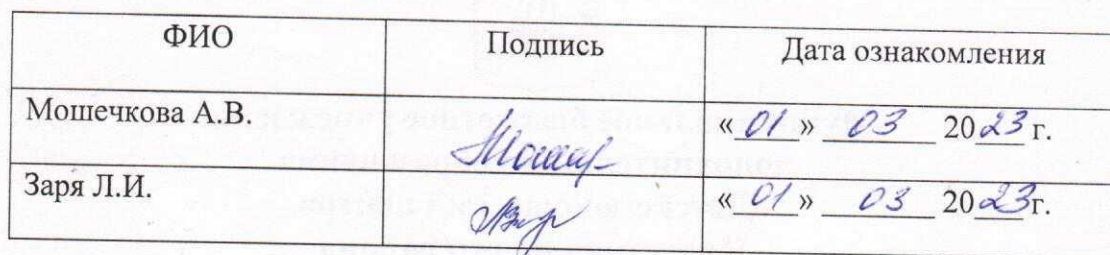 ФИО Подпись Дата ознакомления
Мошечкова А.В. « 01 » 03 20 23 г.
Заря Л.И. « 01 » 03 20 23 г.